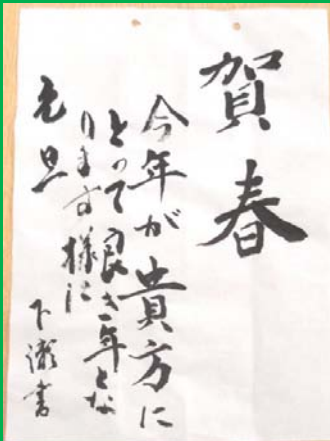 賀春
今年が貴方に
とって良き年とな
ります様に
元旦
下瀬書